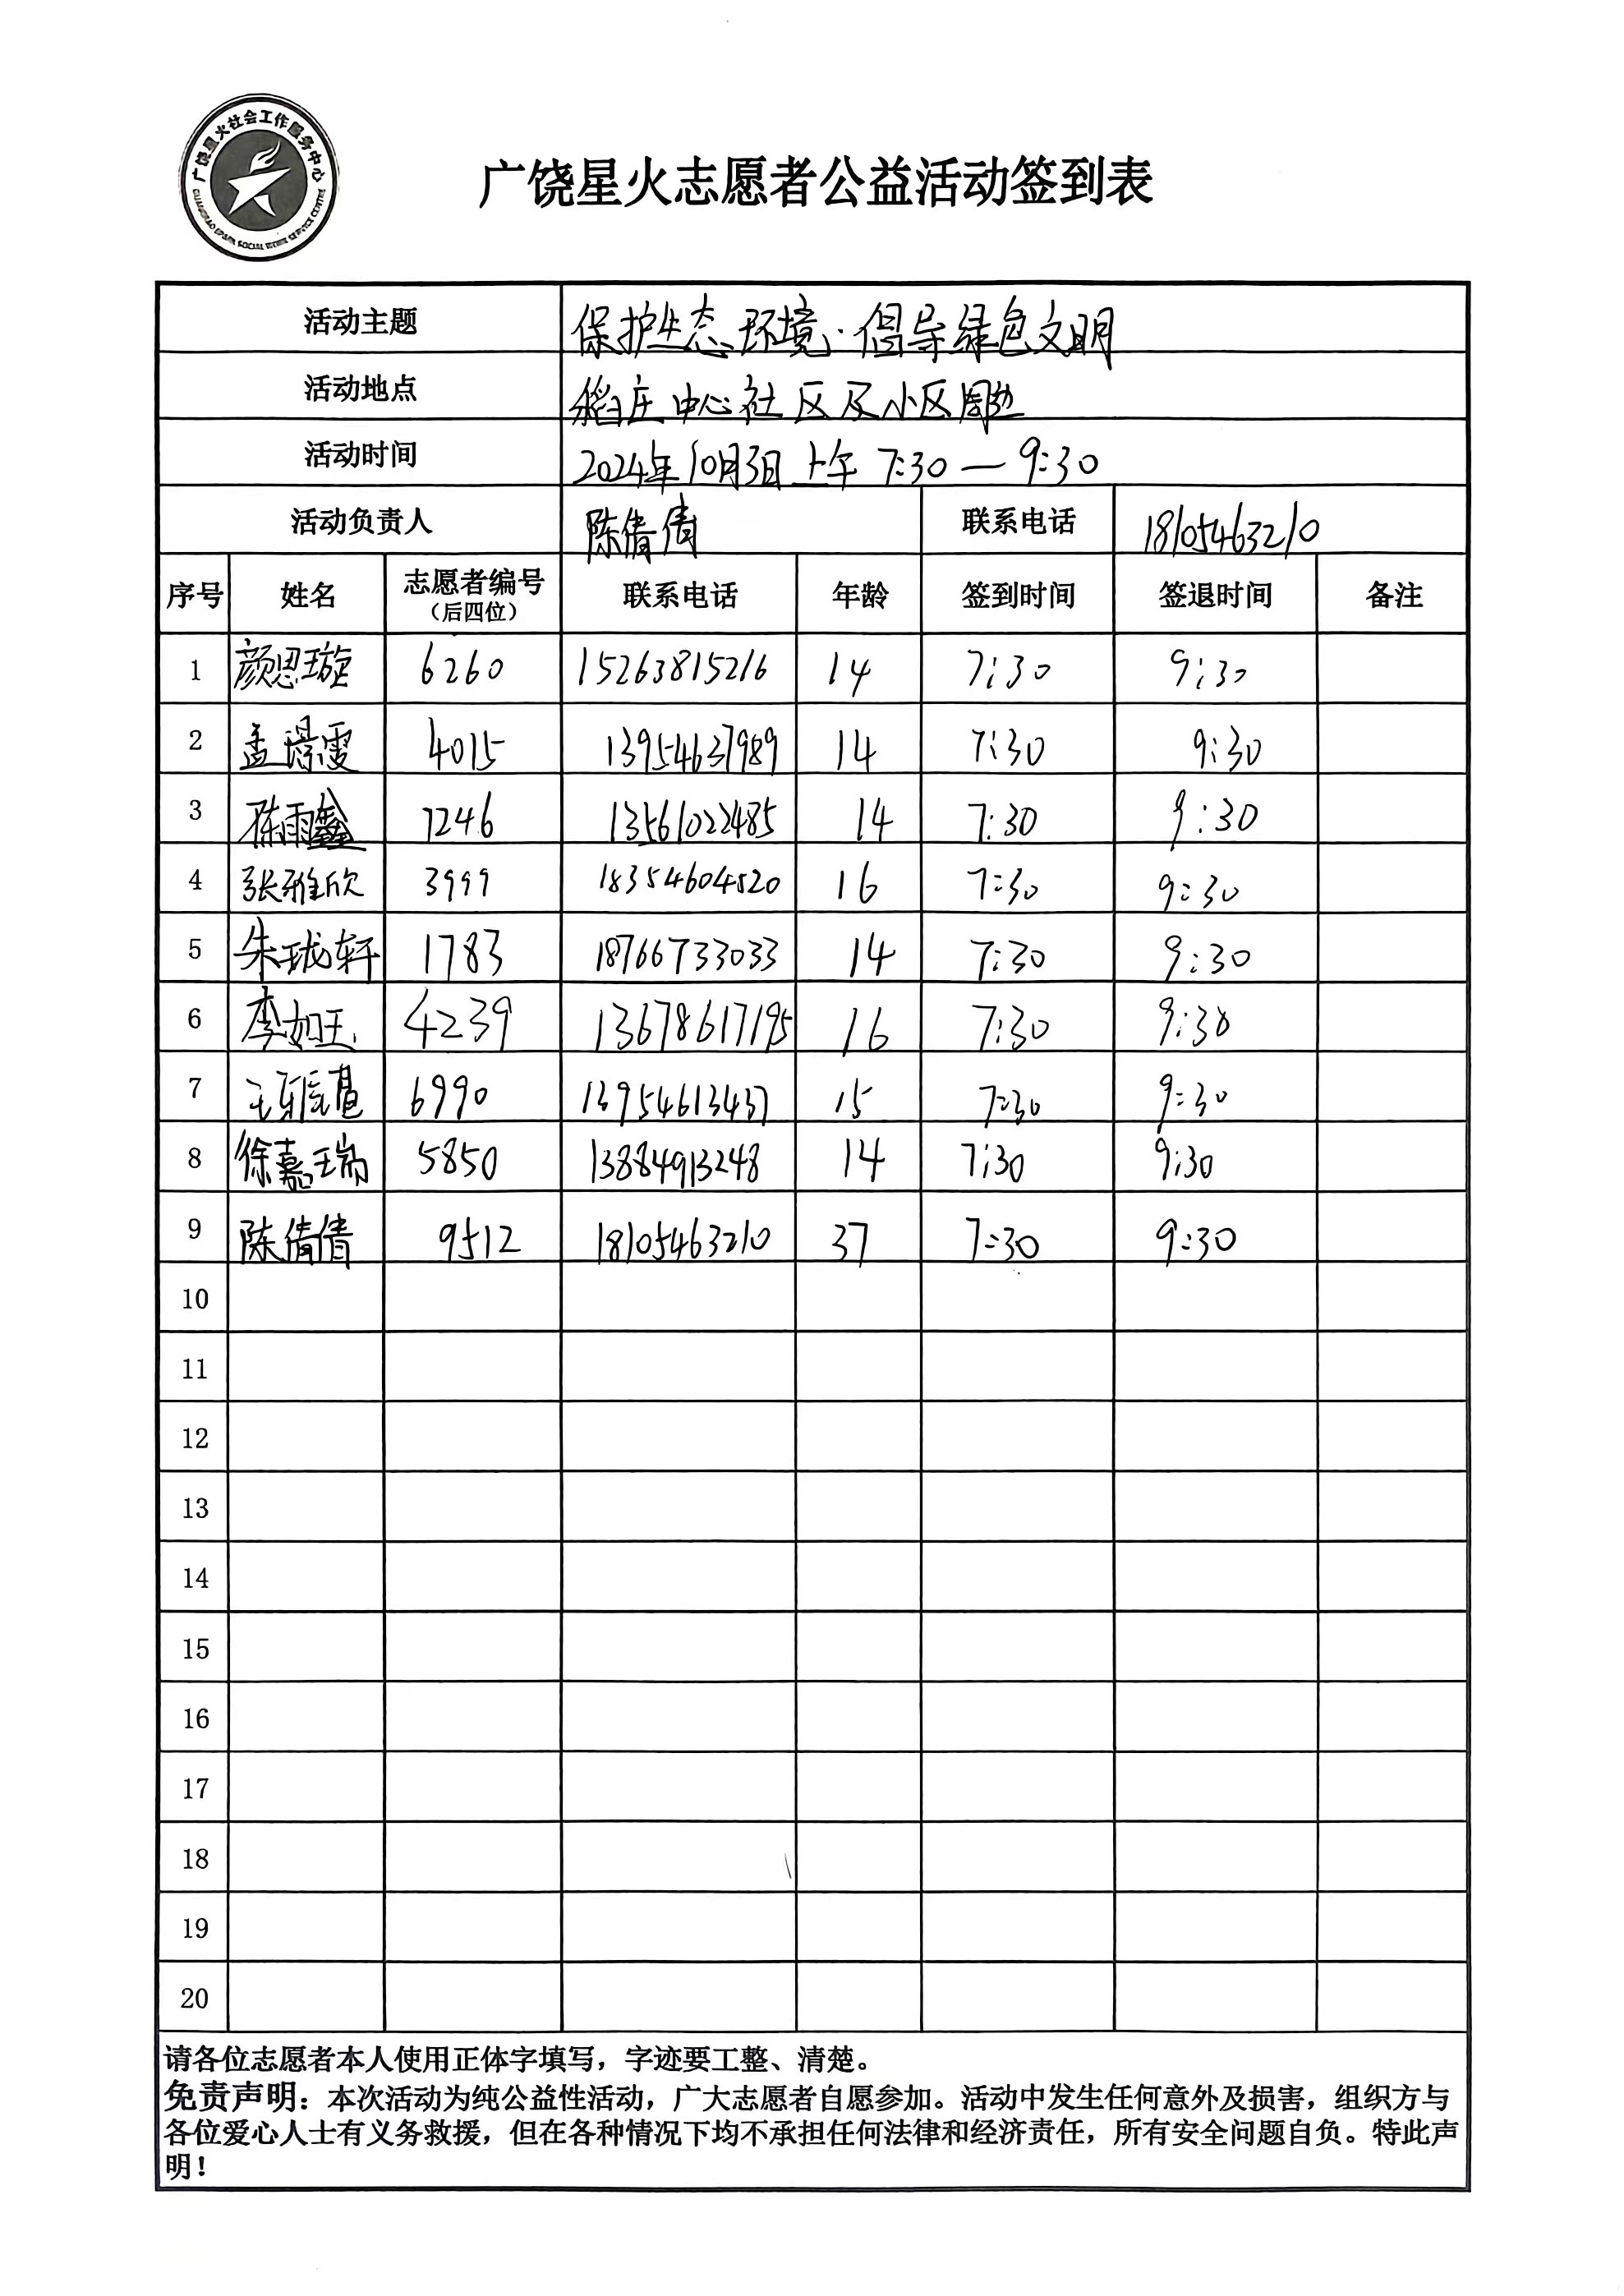 广饶星火社会工作服务中心
GUANGRAO SPARK SOCIAL WORK SERVICE CENTRE
广饶星火志愿者公益活动签到表
活动主题 保护生态环境·倡导绿色文明
活动地点 稻庄中心社区及小区周边
活动时间 2024年10月3日上午 7:30—9:30
活动负责人 陈倩倩 联系电话 18105463210
序号 姓名 志愿者编号（后四位） 联系电话 年龄 签到时间 签退时间 备注
1 颜思璇 6260 15263815216 14 7:30 9:30
2 孟 4015 13954637989 14 7:30 9:30
3 陈雨鑫 7246 13561022485 14 7:30 9:30
4 张雅欣 3999 18354604520 16 7:30 9:30
5 朱珑轩 1783 18766733033 14 7:30 9:30
6 李如玉 4239 13678617195 16 7:30 9:30
7 王 6990 13954613437 15 7:30 9:30
8 徐嘉瑞 5850 13884913248 14 7:30 9:30
9 陈倩倩 9512 18105463210 37 7:30 9:30
10
11
12
13
14
15
16
17
18
19
20
请各位志愿者本人使用正体字填写，字迹要工整、清楚。
免责声明：本次活动为纯公益性活动，广大志愿者自愿参加。活动中发生任何意外及损害，组织方与
各位爱心人士有义务救援，但在各种情况下均不承担任何法律和经济责任，所有安全问题自负。特此声
明！